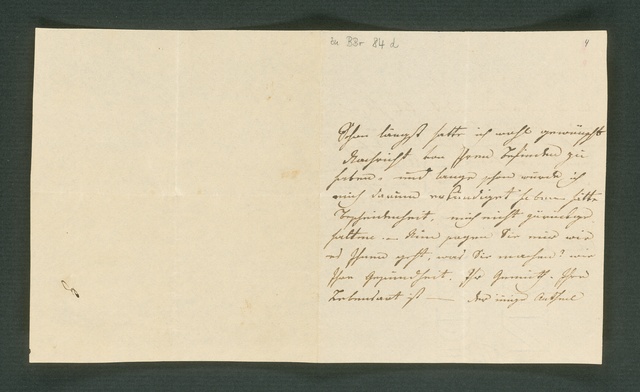 zu BBr 84 d
9
Schon längst hatte ich wohl gewünscht
Nachricht von Ihrem Befinden zu
haben, und lange schon würde ich
mich darum erkundiget haben hätte
Bescheidenheit, mich nicht
halten. Nun sagen Sie mir wie
es Ihnen geht, was Sie machen? wie
Ihre Gesundheit, Ihr Gemüth, Ihre
Lebensart ist — der innige Antheil